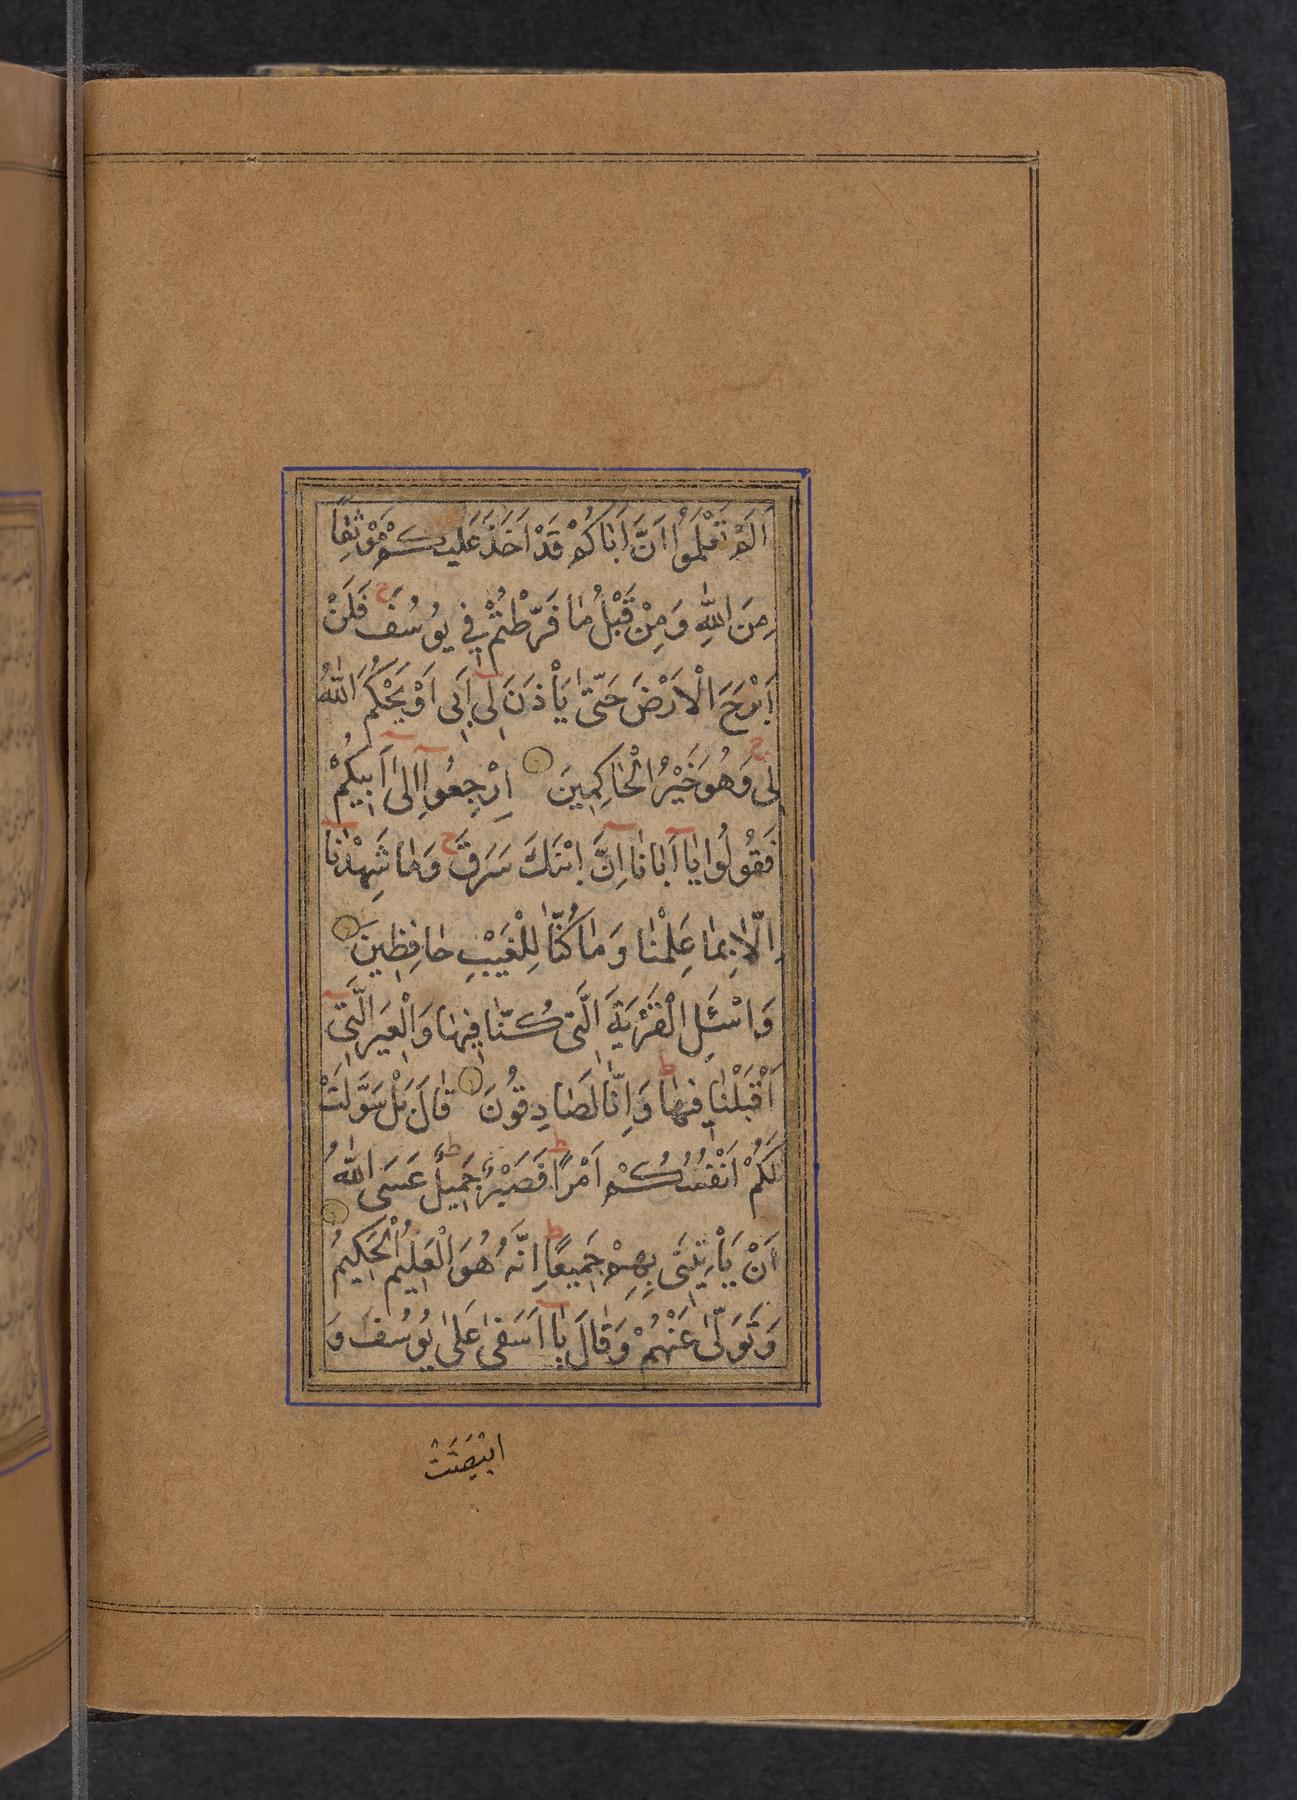 اَلَمْ تَعْلَمُوا اَنَّ اَبَاكُمْ قَدْ اَخَذَ عَلَيْكُمْ مَوْثِقًا
مِنَ اللّٰهِ وَمِنْ قَبْلُ مَا فَرَّطْتُمْ فِي يُوسُفَ ج فَلَنْ
اَبْرَحَ الْاَرْضَ حَتّٰى يَأْذَنَ لِي اَبِي اَوْ يَحْكُمَ اللّٰهُ
لِي ج وَهُوَ خَيْرُ الْحَاكِمِينَ اِرْجِعُوا اِلٰى اَبِيكُمْ
فَقُولُوا يَا اَبَانَا اِنَّ ابْنَكَ سَرَقَ ج وَمَا شَهِدْنَا
اِلَّا بِمَا عَلِمْنَا وَمَا كُنَّا لِلْغَيْبِ حَافِظِينَ
وَاسْئَلِ الْقَرْيَةَ الَّتِي كُنَّا فِيهَا وَالْعِيرَ الَّتِي
اَقْبَلْنَا فِيهَا ط وَاِنَّا لَصَادِقُونَ قَالَ بَلْ سَوَّلَتْ
لَكُمْ اَنْفُسُكُمْ اَمْرًا ط فَصَبْرٌ جَمِيلٌ ط عَسَى اللّٰهُ
اَنْ يَأْتِيَنِي بِهِمْ جَمِيعًا ط اِنَّهُ هُوَ الْعَلِيمُ الْحَكِيمُ
وَتَوَلّٰى عَنْهُمْ وَقَالَ يَا اَسَفٰى عَلٰى يُوسُفَ وَ
ابْيَضَّتْ